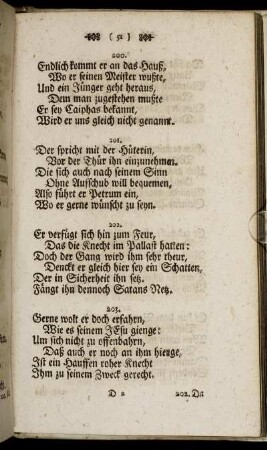 ( 51 )
200.
Endlich kommt er an das Hauß,
Wo er seinen Meister wußte,
Und ein Jünger geht heraus,
Dem man zugestehen mußte
Er sey Caiphas bekannt,
Wird er uns gleich nicht genannt.
201.
Der spricht mit der Hüterin,
Vor der Thür ihn einzunehmen.
Die sich auch nach seinem Sinn
Ohne Aufschub will bequemen,
Also führt er Petrum ein,
Wo er gerne wünscht zu seyn.
202.
Er verfügt sich hin zum Feur,
Das die Knecht im Pallast hatten:
Doch der Gang wird ihm sehr theur,
Denckt er gleich hier sey ein Schatten,
Der in Sicherheit ihn setz.
Fängt ihn dennoch Satans Netz.
203.
Gerne wolt er doch erfahrn,
Wie es seinem JEsu gienge:
Um sich nicht zu offenbahrn,
Daß auch er noch an ihm hienge,
Ist ein Hauffen roher Knecht
Ihm zu seinem Zweck gerecht.
D 2 202. Da